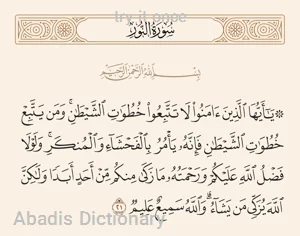 try it pope
سُورَةُ النُّورِ
بِسْمِ اللَّهِ الرَّحْمَٰنِ الرَّحِيمِ
۞ يَٰٓأَيُّهَا ٱلَّذِينَ ءَامَنُوا۟ لَا تَتَّبِعُوا۟ خُطُوَٰتِ ٱلشَّيْطَٰنِ ۚ وَمَن يَتَّبِعْ
خُطُوَٰتِ ٱلشَّيْطَٰنِ فَإِنَّهُۥ يَأْمُرُ بِٱلْفَحْشَآءِ وَٱلْمُنكَرِ ۚ وَلَوْلَا
فَضْلُ ٱللَّهِ عَلَيْكُمْ وَرَحْمَتُهُۥ مَا زَكَىٰ مِنكُم مِّنْ أَحَدٍ أَبَدًا وَلَٰكِنَّ
ٱللَّهَ يُزَكِّى مَن يَشَآءُ ۗ وَٱللَّهُ سَمِيعٌ عَلِيمٌ ٢١
Abadis Dictionary